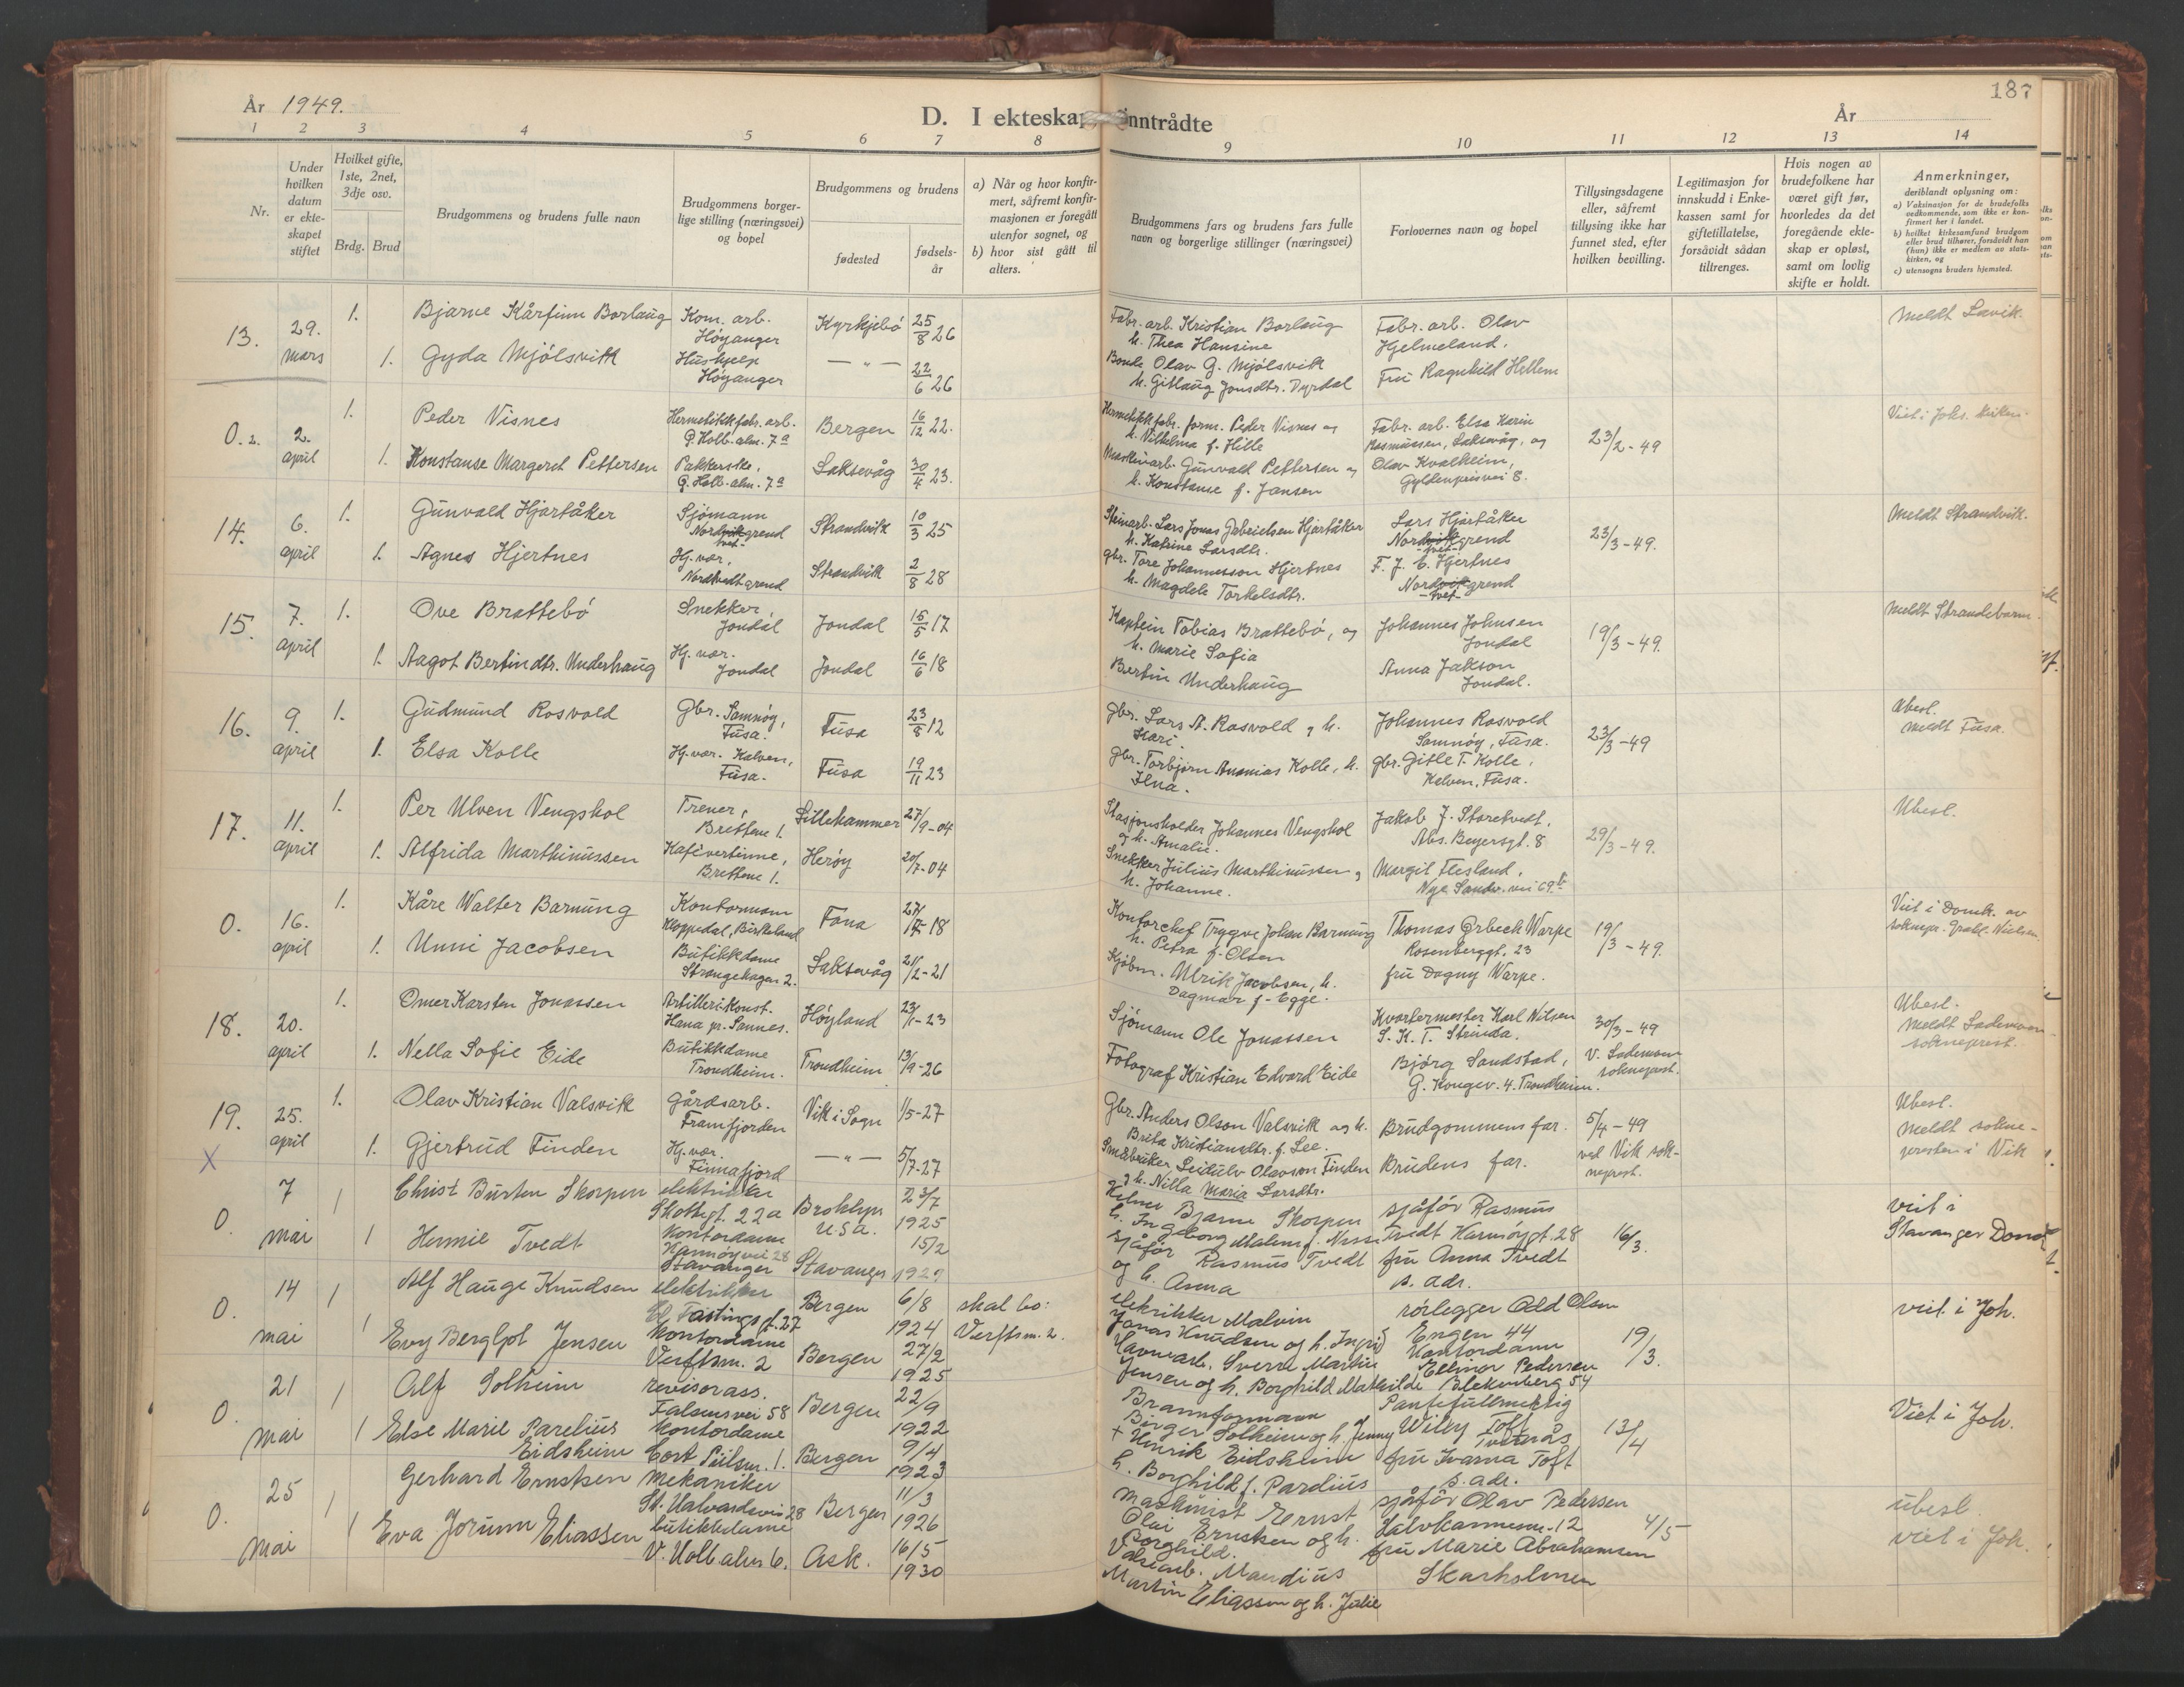 År 1949.
D. I ekteskap inntrådte
År
187
1 2 3 4 5 6 7 8 9 10 11 12 13 14
Nr.
Under hvilken datum er ekteskapet stiftet
Hvilket gifte, 1ste, 2net, 3dje osv.
Brdg. Brud
Brudgommens og brudens fulle navn
Brudgommens borgerlige stilling (næringsvei) og bopel
Brudgommens og brudens
fødested
fødselsår
a) Når og hvor konfirmert, såfremt konfirmasjonen er foregått utenfor sognet, og
b) hvor sist gått til alters.
Brudgommens fars og brudens fars fulle navn og borgerlige stillinger (næringsvei)
Forlovernes navn og bopel
Tillysingsdagene eller, såfremt tillysing ikke har funnet sted, efter hvilken bevilling.
Legitimasjon for innskudd i Enkekassen samt for giftetillatelse, forsåvidt sådan tiltrenges.
Hvis nogen av brudefolkene har været gift før, hvorledes da det foregående ekteskap er opløst, samt om lovlig skifte er holdt.
Anmerkninger,
deriblandt oplysning om:
a) Vaksinasjon for de brudefolks vedkommende, som ikke er konfirmert her i landet.
b) hvilket kirkesamfund brudgom eller brud tilhører, forsåvidt han (hun) ikke er medlem av statskirken, og
c) utensogns bruders hjemsted.
13. 29. mars
1. Bjarne Kårfinn Borlaug Kom. arb. Høyanger Kyrkjebø 25/8 26
Fabr. arb. Kristian Borlaug h. Thea Hansine
Fabr. arb. Olav Hjelmeland.
Meldt Lavik.
1. Gyda Mjølsvik Hushjelp Høyanger — " — 22/6 26
Bonde Olav G. Mjølsvik h. Gitlaug Jonsdtr. Dyrdal
Fru Ragnhild Hellem
0. 2. 2. april
1. Peder Visnes Hermetikkfabr. arb. G. Holb. alm. 7a Bergen 16/12 22.
Hermetikkfabr. form. Peder Visnes og h. Vilhelma f. Hille
Fabr. arb. Else Karin Rasmussen, Laksevåg, og
23/2 - 49
Viet i Johs. kirken.
1. Konstanse Margret Pettersen Pakkerske, G. Holb. alm. 7a Laksevåg 30/4 23.
Maskinarb. Gunvald Pettersen og h. Konstanse f. Jansen
Olav Kvalheim, Gyldenprisvei 8.
14. 6. april
1. Gunvald Hjartåker Sjømann Nordvikgrend tvet- Strandvik 10/3 25
Steinarb. Lars Jonas Gabrielsen Hjartåker h. Katrine Larsdtr.
Lars Hjartåker Nordvikgrend -tvet-
23/3 - 49.
Meldt Strandvik.
1. Agnes Hjertnes Hj. vær. Nordtvedtgrend Strandvik 2/8 28
gbr. Tore Johannesson Hjertnes h. Magdele Torkelsdtr.
F. J. E. Hjertnes Nordvikgrend -tvet-
15. 7. april
1. Ove Brattebø Snekker, Jondal Jondal 15/5 17
Kaptein Tobias Brattebø, og h. Marie Sofia
Johannes Johnsen Jondal
19/3 - 49.
Meldt Strandebarm.
1. Aagot Bertindtr. Underhaug Hj. vær. Jondal Jondal 16/6 18
Bertin Underhaug
Anna Jakson Jondal.
16. 9. april
1. Gudmund Rosvold Gbr. Samnøy, Fusa. Fusa 23/8 12
gbr. Lars A. Rosvold og h. Kari.
Johannes Rosvold Samnøy, Fusa.
23/3 - 49
Ubesl. Meldt Fusa.
1. Elsa Kolle Hj. vær. Helven, Fusa. Fusa 19/11 23
gbr. Torbjørn Ananias Kolle, h. Ilna.
gbr. Gitle T. Kolle, Helven, Fusa.
17. 11. april
1. Per Ulven Vengshol Trener, Brettene 1. Lillehammer 27/9 - 04
Stasjonsholder Johannes Vengshol og h. Amalie.
Jakob J. Storetvedt. Abs. Beyersgt. 8
29/3 - 49.
Ubesl.
1. Alfrida Marthinussen Kafévertinne, Brettene 1. Herøy 20/7 - 04
Snekker Julius Marthinussen og h. Johanne.
Margit Flesland, Nye Sandv. vei 69b
0. 16. april
1. Kåre Walter Barnung Kontormann Kloppedal, Birkeland Fana 18
Kontorchef Trygve Johan Barnung h. Petra f. Olsen
Thomas Ørbech Warpe Rosenberggt. 23
19/3 - 49.
Viet i Domk. av sokнepr. Nielsen.
1. Unni Jacobsen Butikkdame Strangehagen 2. Laksevåg 21/2 - 21
Kjøbm. Ulrik Jacobsen, h. Dagmar f. Egge.
fru Dagny Warpe.
18. 20. april
1. Omer Karsten Jonassen Artillerikonst. Hana pr. Sannes. Høyland 23/1 - 23
Sjømann Ole Jonassen
Kvartermester Karl Nilsen S. K. T. Strinda.
30/3 - 49 v. Lademoen sokneprest.
Ubesl. Meldt Lademoen sokneprest.
1. Nella Sofie Eide Butikkdame Trondheim. Trondheim 13/9 - 26
Fotograf Kristian Edvard Eide
Bjørg Sandstad, G. Kongev. 4. Trondheim.
19. X 25. april
1. Olav Kristian Valsvik Gårdsarb. Framfjorden Vik i Sogn 1/5 - 27
Gbr. Anders Olson Valsvik og h. Brita Kristiansdtr. f. Lee.
Brudgommens far.
5/4 - 49 ved Vik sokneprest.
Ubesl. Meldt soknepresten i Vik
1. Gjertrud Finden Hj. vær. Finnafjord — " — 5/7 - 27
Småbruker Leidulv Olavson Finden og h. Nilla Maria Larsdtr.
Brudens far.
0. 7 mai
1 Christ Burten Skorpen elektriker Skottegt. 22a Broklyn U.S.A. 23/7 1925
Bjarne Skorpen h. Ingeborg Malene f. Nesse
sjåfør Rasmus Tvedt Karmøygt. 28
16/3.
viet i Stavanger Domk.
1 Hermie Tvedt Kontordame Karmøyvei 28 Stavanger Stavanger 15/2 1929
sjåfør Rasmus Tvedt og h. Anna
fru Anna Tvedt s. adr.
0. 14 mai
1 Alf Hauge Knudsen elektrikker El. Tastingsgt. 27 Bergen 6/8 1924
skal bo: Verftsm. 2.
elekrikker Malvin Jonas Knudsen og h. Ingrid
rørlegger Odd Olsen Engen 44
19/3.
viet i Joh.
1 Evy Bergljot Jensen Kontordame Verftsm. 2 Bergen 27/2 1925
Havnearb. Sverre Martin Jensen og h. Borghild Mathilde
Kontordame Ellinor Pedersen Blekenberg 54
0. 21 mai
1 Alf Solheim revisorass. Falsensvei 58 Bergen 22/9 1922
Brannformann Birger Solheim og h. Jenny
Pantefullmektig Willy Toft
13/4
Viet i Joh.
1 Else Marie Parelius Eidsheim Kontordame Cort Piilsm. 1. Bergen 9/4 1923
+ Henrik Eidsheim h. Borghild f. Parelius
fru Ivarna Toft s. adr.
0. 25 mai
1 Gerhard Ernstsen Mekaniker St. Halvardsvei 28 Bergen 11/3 1926
Maskinist Ernst Olai Ernstsen og h. Borghild.
sjåfør Olav Pedersen Halvkannesm. 12
4/5
ubesl. viet i Joh.
1 Eva Jorunn Eliassen butikkdame V. Holb alm 6. Ask. 16/5 1930
Mandius Martin Eliassen og h. Julie
fru Marie Abrahamsen Skarholmen